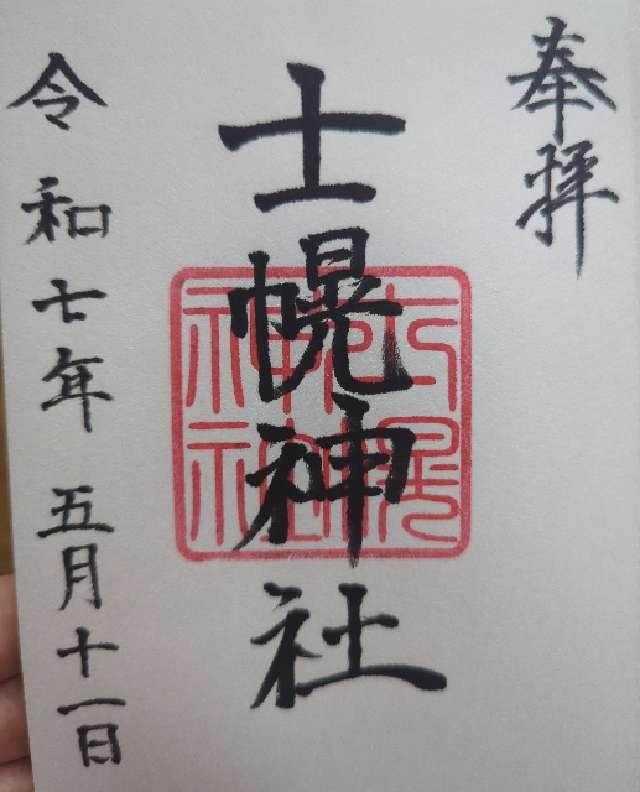 奉拝
士幌神社
士幌神社
令和七年 五月十一日